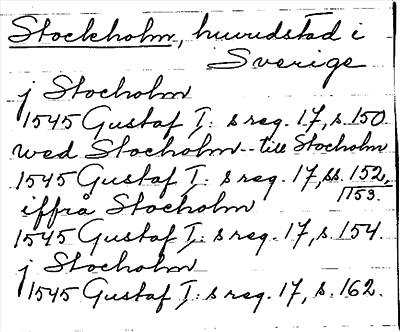 Stockholm, huvudstad i
Sverige
j Stocholm
1545 Gustaf I: s reg. 17, s. 150
wed Stocholm -- till Stocholm
1545 Gustaf I: s reg. 17, ss. 152,
153.
iffrå Stocholm
1545 Gustaf I: s reg. 17, s. 154.
j Stocholm
1545 Gustaf I: s reg. 17, s. 162.